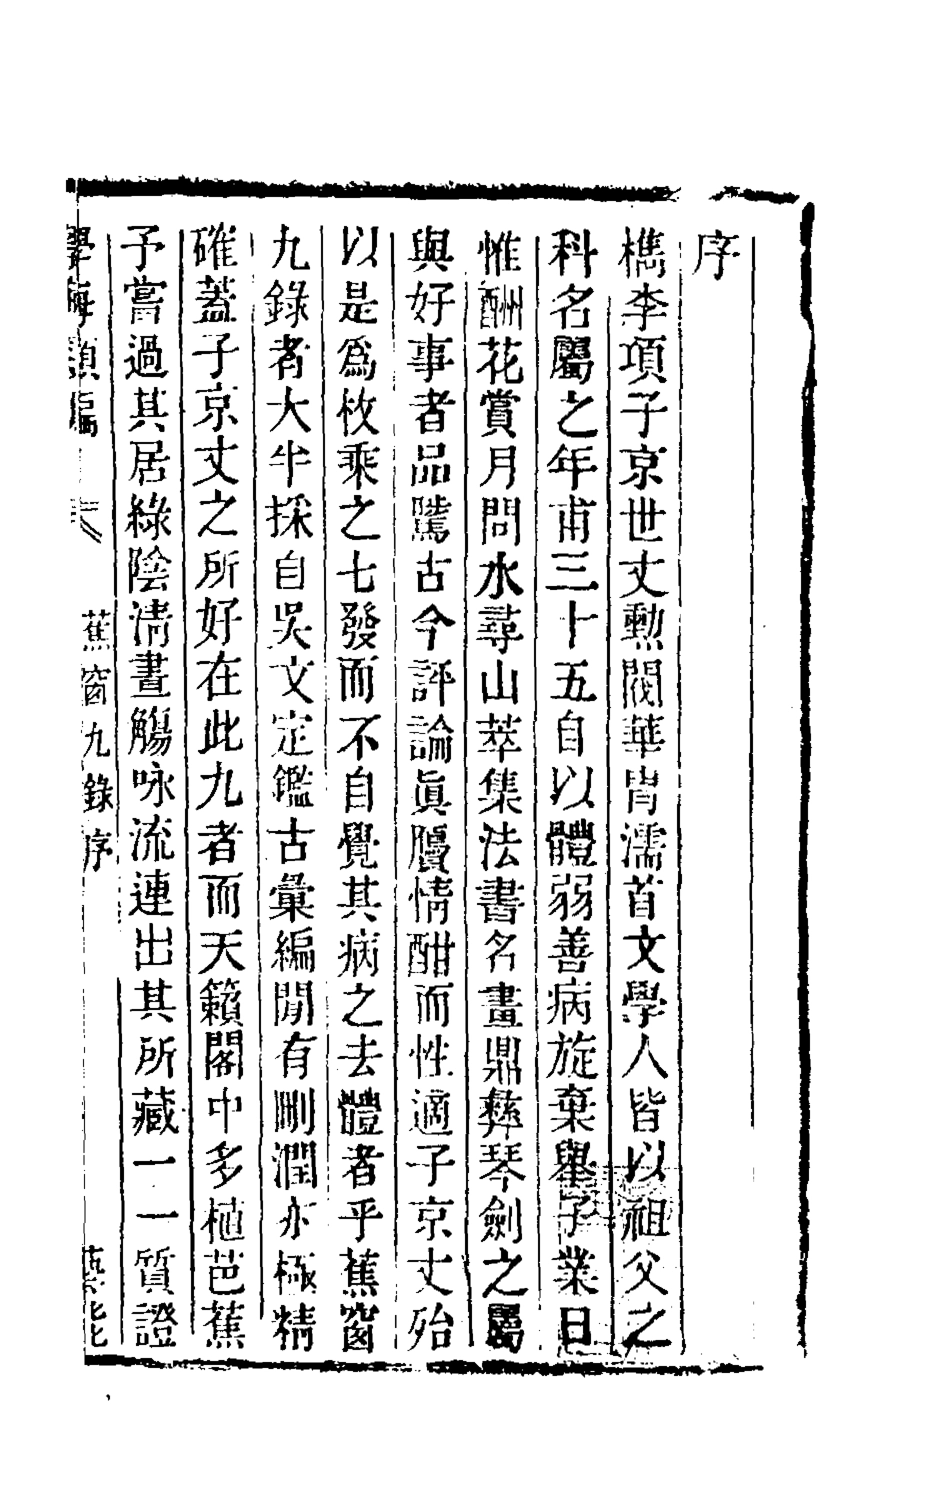 序
檇李項子京世丈勲閥華胄濡首文學人皆以祖父之
科名屬之年甫三十五自以體弱善病旋棄舉子業日
惟酬花賞月問水尋山萃集法書名畫鼎彝琴劍之屬
與好事者品隲古今評論眞贗情酣而性適子京丈殆
以是爲枚乘之七發而不自覺其病之去體者乎蕉窗
九錄者大半採自吳文定鑑古彙編閒有刪潤亦極精
確蓋子京丈之所好在此九者而天籟閣中多植芭蕉
予嘗過其居綠陰淸晝觴咏流連出其所藏一一質證
學海類編 蕉窗九錄序 藝能